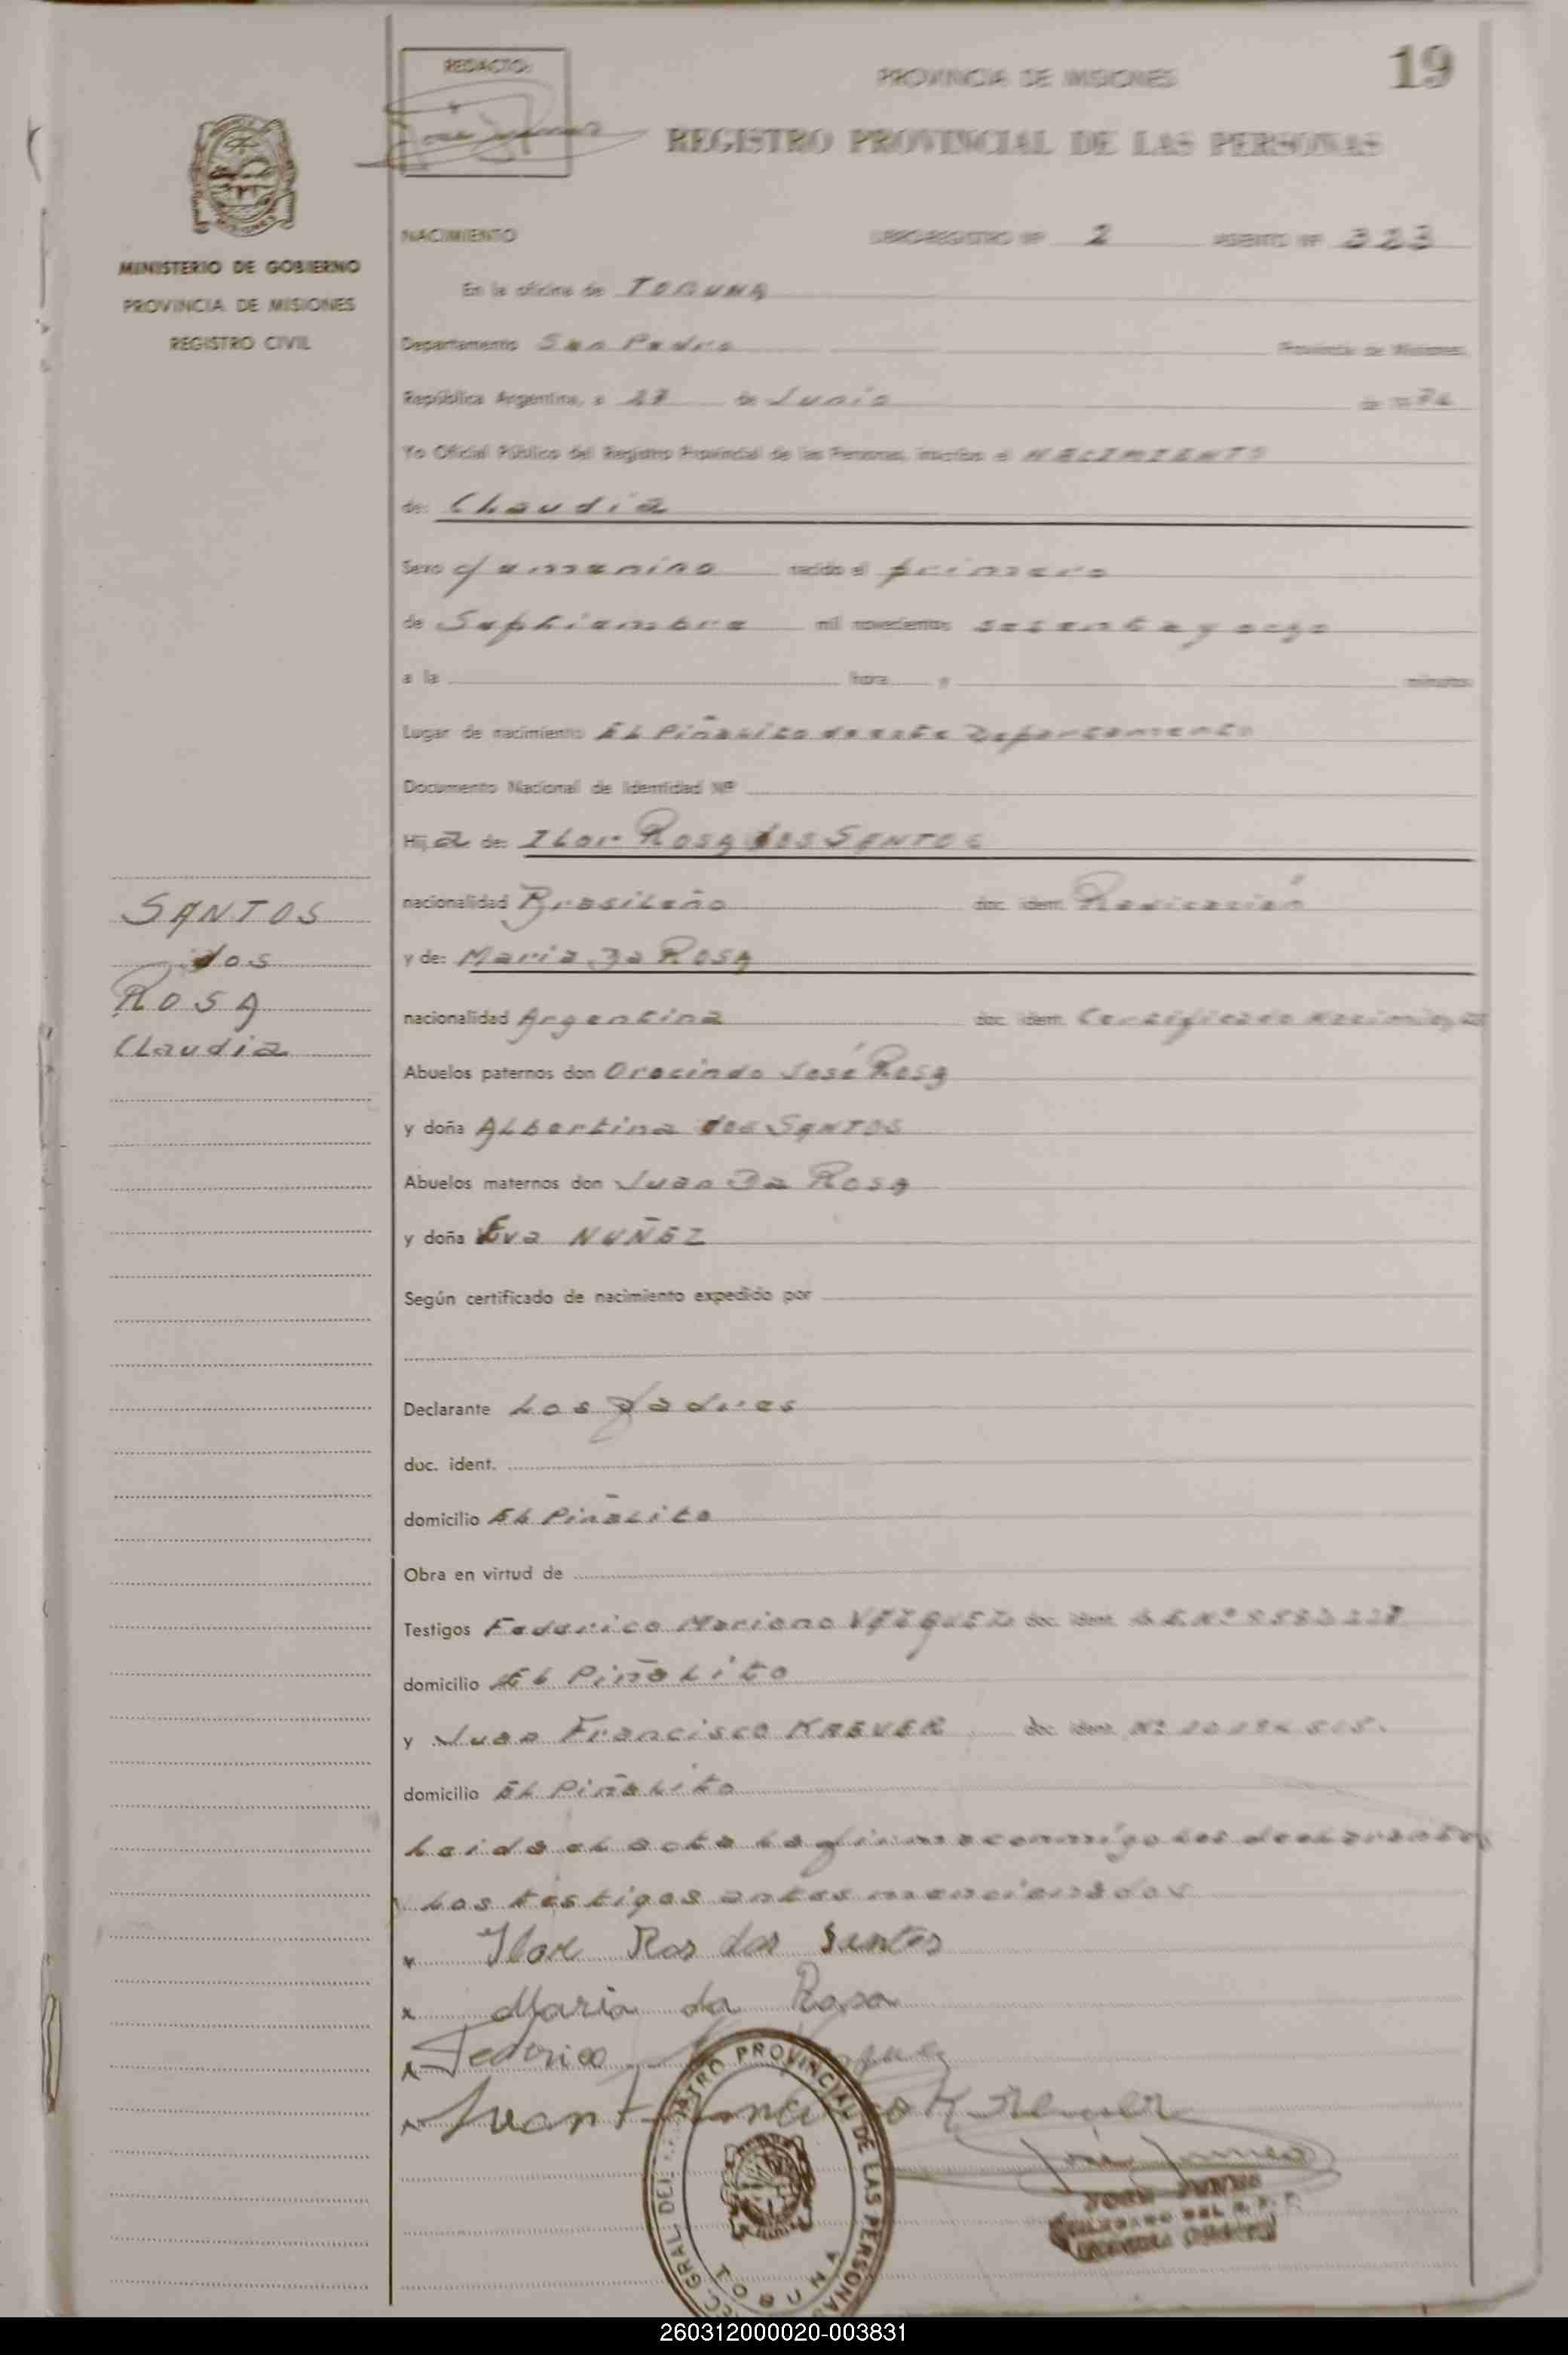 REDACTO:
PROVINCIA DE MISIONES
19
REGISTRO PROVINCIAL DE LAS PERSONAS
MINISTERIO DE GOBIERNO
PROVINCIA DE MISIONES
REGISTRO CIVIL
NACIMIENTO LIBRO-REGISTRO Nº 2 ASIENTO Nº 323
En la oficina de TOBUNA
Departamento San Pedro Provincia de Misiones,
República Argentina, a de Junio de
Yo Oficial Público del Registro Provincial de las Personas, inscribo el NACIMIENTO
de: Claudia
Sexo femenino nacido el primero
de Septiembre mil novecientos sesenta y ocho
a la hora y minutos
Lugar de nacimiento El Piñalito de este Departamento
Documento Nacional de Identidad Nº
Hija de: Ilor Rosa dos SANTOS
nacionalidad Brasileño doc. ident. Radicación
y de: Maria Da Rosa
nacionalidad Argentina doc. ident. Certificado
SANTOS
dos
ROSA
Claudia
Abuelos paternos don Orocindo José Rosa
y doña Albertina dos SANTOS
Abuelos maternos don Juan Da Rosa
y doña Eva NUÑEZ
Según certificado de nacimiento expedido por
Declarante Los Padres
doc. ident.
domicilio El Piñalito
Obra en virtud de
Testigos Federico Mariano VAZQUEZ doc. ident.
domicilio El Piñalito
y Juan Francisco KREVER doc. ident. Nº
domicilio El Piñalito
Leida el acta la firman conmigo los declarantes
y los testigos antes mencionados
x Ilor Ros dos Santos
x Maria da Rosa
x Federico
x Juan Francisco
GRAL. DEL REGISTRO PROVINCIAL DE LAS PERSONAS
TOBUNA
260312000020-003831